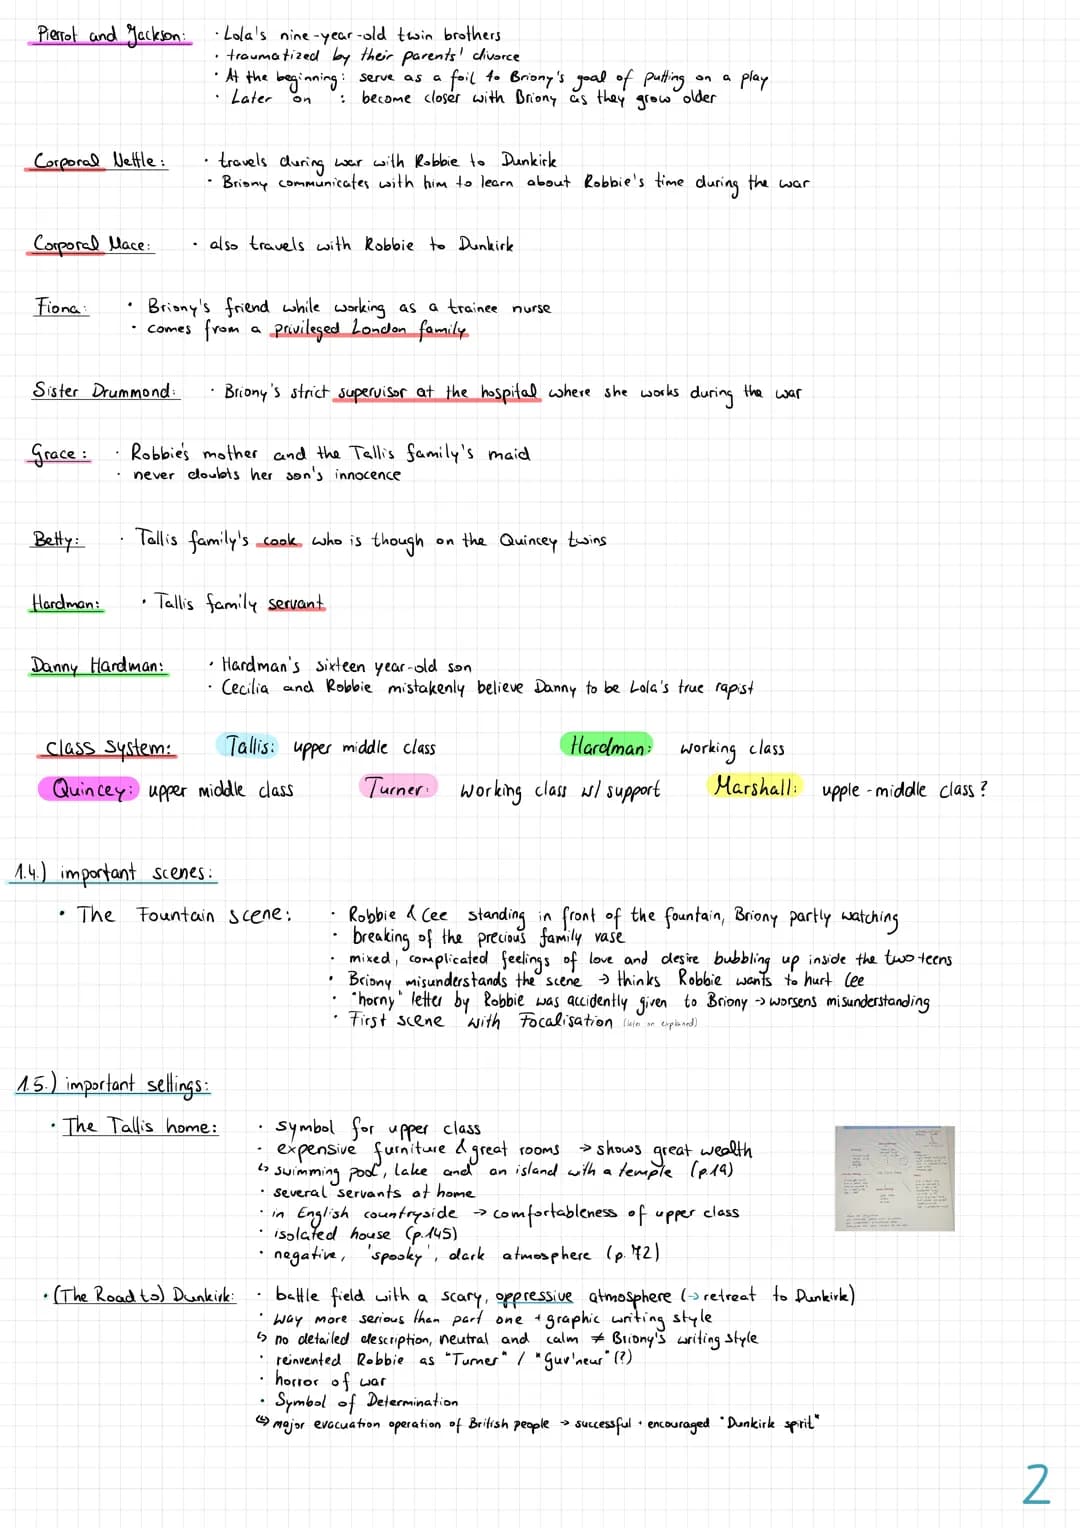 Pierrot and Jackson: · Lola's nine-year-old twin brothers
· traumatized by their parents' divorce
· At the beginning: serve as a foil to Briony's goal of putting on a play
· Later on : become closer with Briony as they grow older
Corporal Nettle: · travels during war with Robbie to Dunkirk
· Briony communicates with him to learn about Robbie's time during the war
Corporal Mace: · also travels with Robbie to Dunkirk
Fiona: · Briony's friend while working as a trainee nurse
· comes from a privileged London family
Sister Drummond: · Briony's strict supervisor at the hospital where she works during the war
Grace: · Robbie's mother and the Tallis family's maid
· never doubts her son's innocence
Betty: · Tallis family's cook who is though on the Quincey twins
Hardman: · Tallis family servant
Danny Hardman: · Hardman's sixteen year-old son
· Cecilia and Robbie mistakenly believe Danny to be Lola's true rapist
Class System: Tallis: upper middle class Hardman: working class
Quincey: upper middle class Turner: working class w/ support Marshall: upple-middle class?
1.4.) important scenes:
· The Fountain scene: · Robbie & Cee standing in front of the fountain, Briony partly watching
· breaking of the precious family vase
· mixed, complicated feelings of love and desire bubbling up inside the two teens
· Briony misunderstands the scene → thinks Robbie wants to hurt Cee
· "horny" letter by Robbie was accidently given to Briony → worsens misunderstanding
· First scene with Focalisation (later on explained)
1.5.) important settings:
· The Tallis home: · symbol for upper class
· expensive furniture & great rooms → shows great wealth
↳ swimming pool, lake and an island with a temple (p.19)
· several servants at home
· in English countryside → comfortableness of upper class
· isolated house (p.145)
· negative, 'spooky', dark atmosphere (p.72)
· (The Road to) Dunkirk: · battle field with a scary, oppressive atmosphere (→ retreat to Dunkirk)
· way more serious than part one + graphic writing style
↳ no detailed description, neutral and calm ≠ Briony's writing style
· reinvented Robbie as "Turner" / "Guv'neur" (?)
· horror of war
· Symbol of Determination
(↳) major evacuation operation of British people → successful + encouraged "Dunkirk spirit"
2